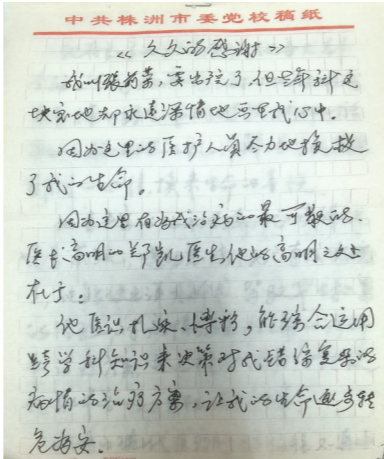 中共株洲市委党校稿纸
《久久的感谢》
我叫张菊荣，要出院了，但老年科这
块宝地却永远深情地留在我心中。
因为这里的医护人员尽力地拯救
了我的生命。
因为这里有为我治病的最可敬的、
医术高明的郑凯医生，他的高明之处
在于：
他医识扎实、博彩，能综合运用
跨学科知识来决策对我错综复杂的
病情的治疗方案，让我的生命逐步转
危为安。